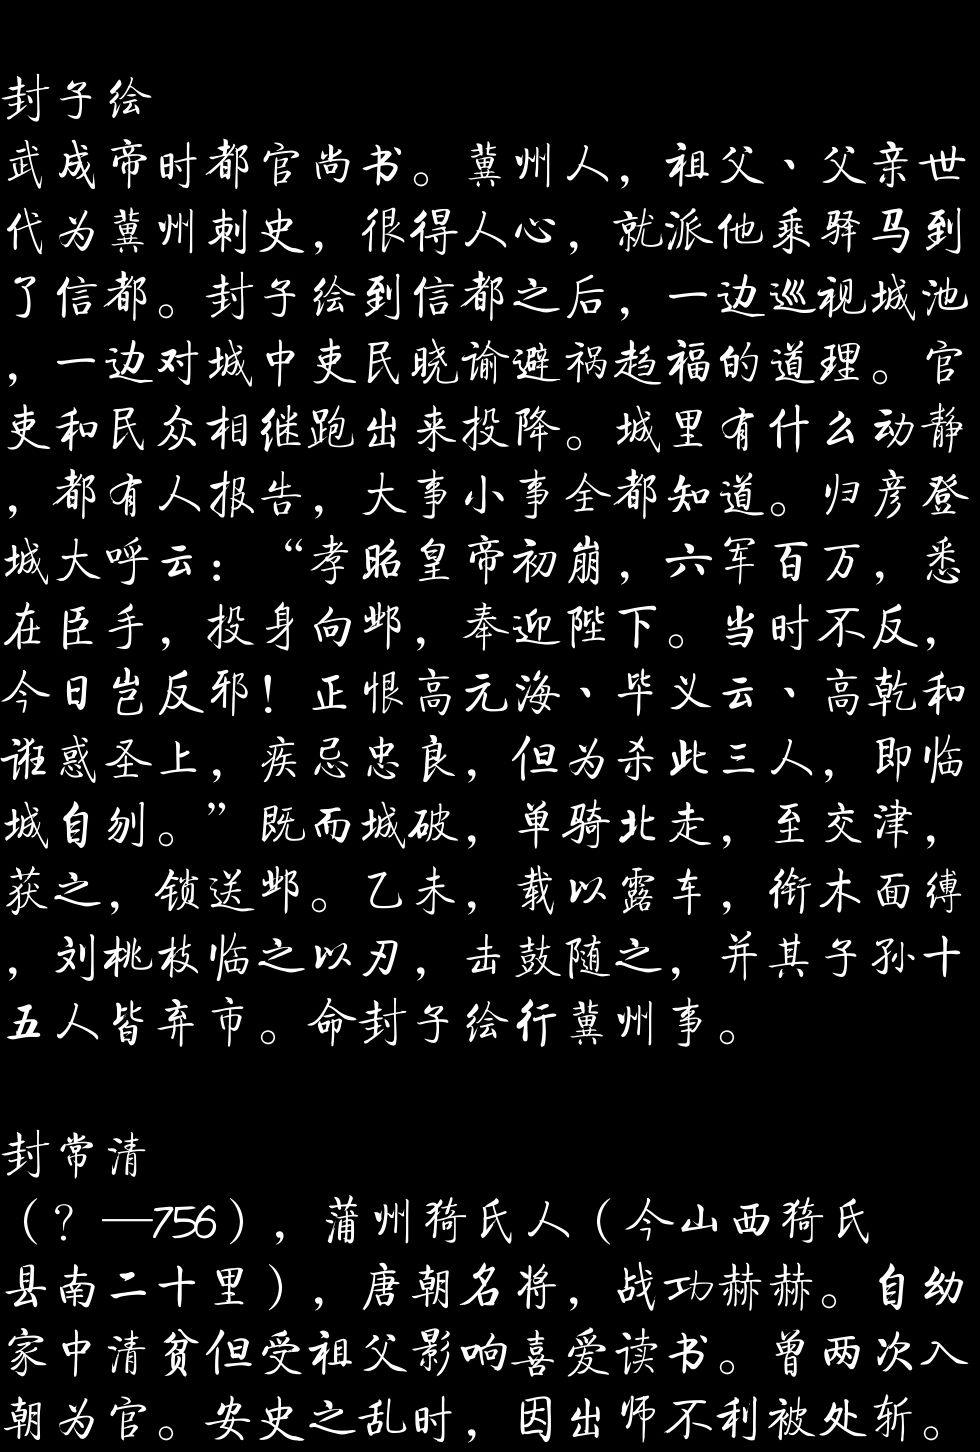 封子绘
武成帝时都官尚书。冀州人，祖父、父亲世
代为冀州刺史，很得人心，就派他乘驿马到
了信都。封子绘到信都之后，一边巡视城池
，一边对城中吏民晓谕避祸趋福的道理。官
吏和民众相继跑出来投降。城里有什么动静
，都有人报告，大事小事全都知道。归彦登
城大呼云：“孝昭皇帝初崩，六军百万，悉
在臣手，投身向邺，奉迎陛下。当时不反，
今日岂反邪！正恨高元海、毕义云、高乾和
诳惑圣上，疾忌忠良，但为杀此三人，即临
城自刎。”既而城破，单骑北走，至交津，
获之，锁送邺。乙未，载以露车，衔木面缚
，刘桃枝临之以刃，击鼓随之，并其子孙十
五人皆弃市。命封子绘行冀州事。
封常清
（？—756），蒲州猗氏人（今山西猗氏
县南二十里），唐朝名将，战功赫赫。自幼
家中清贫但受祖父影响喜爱读书。曾两次入
朝为官。安史之乱时，因出师不利被处斩。